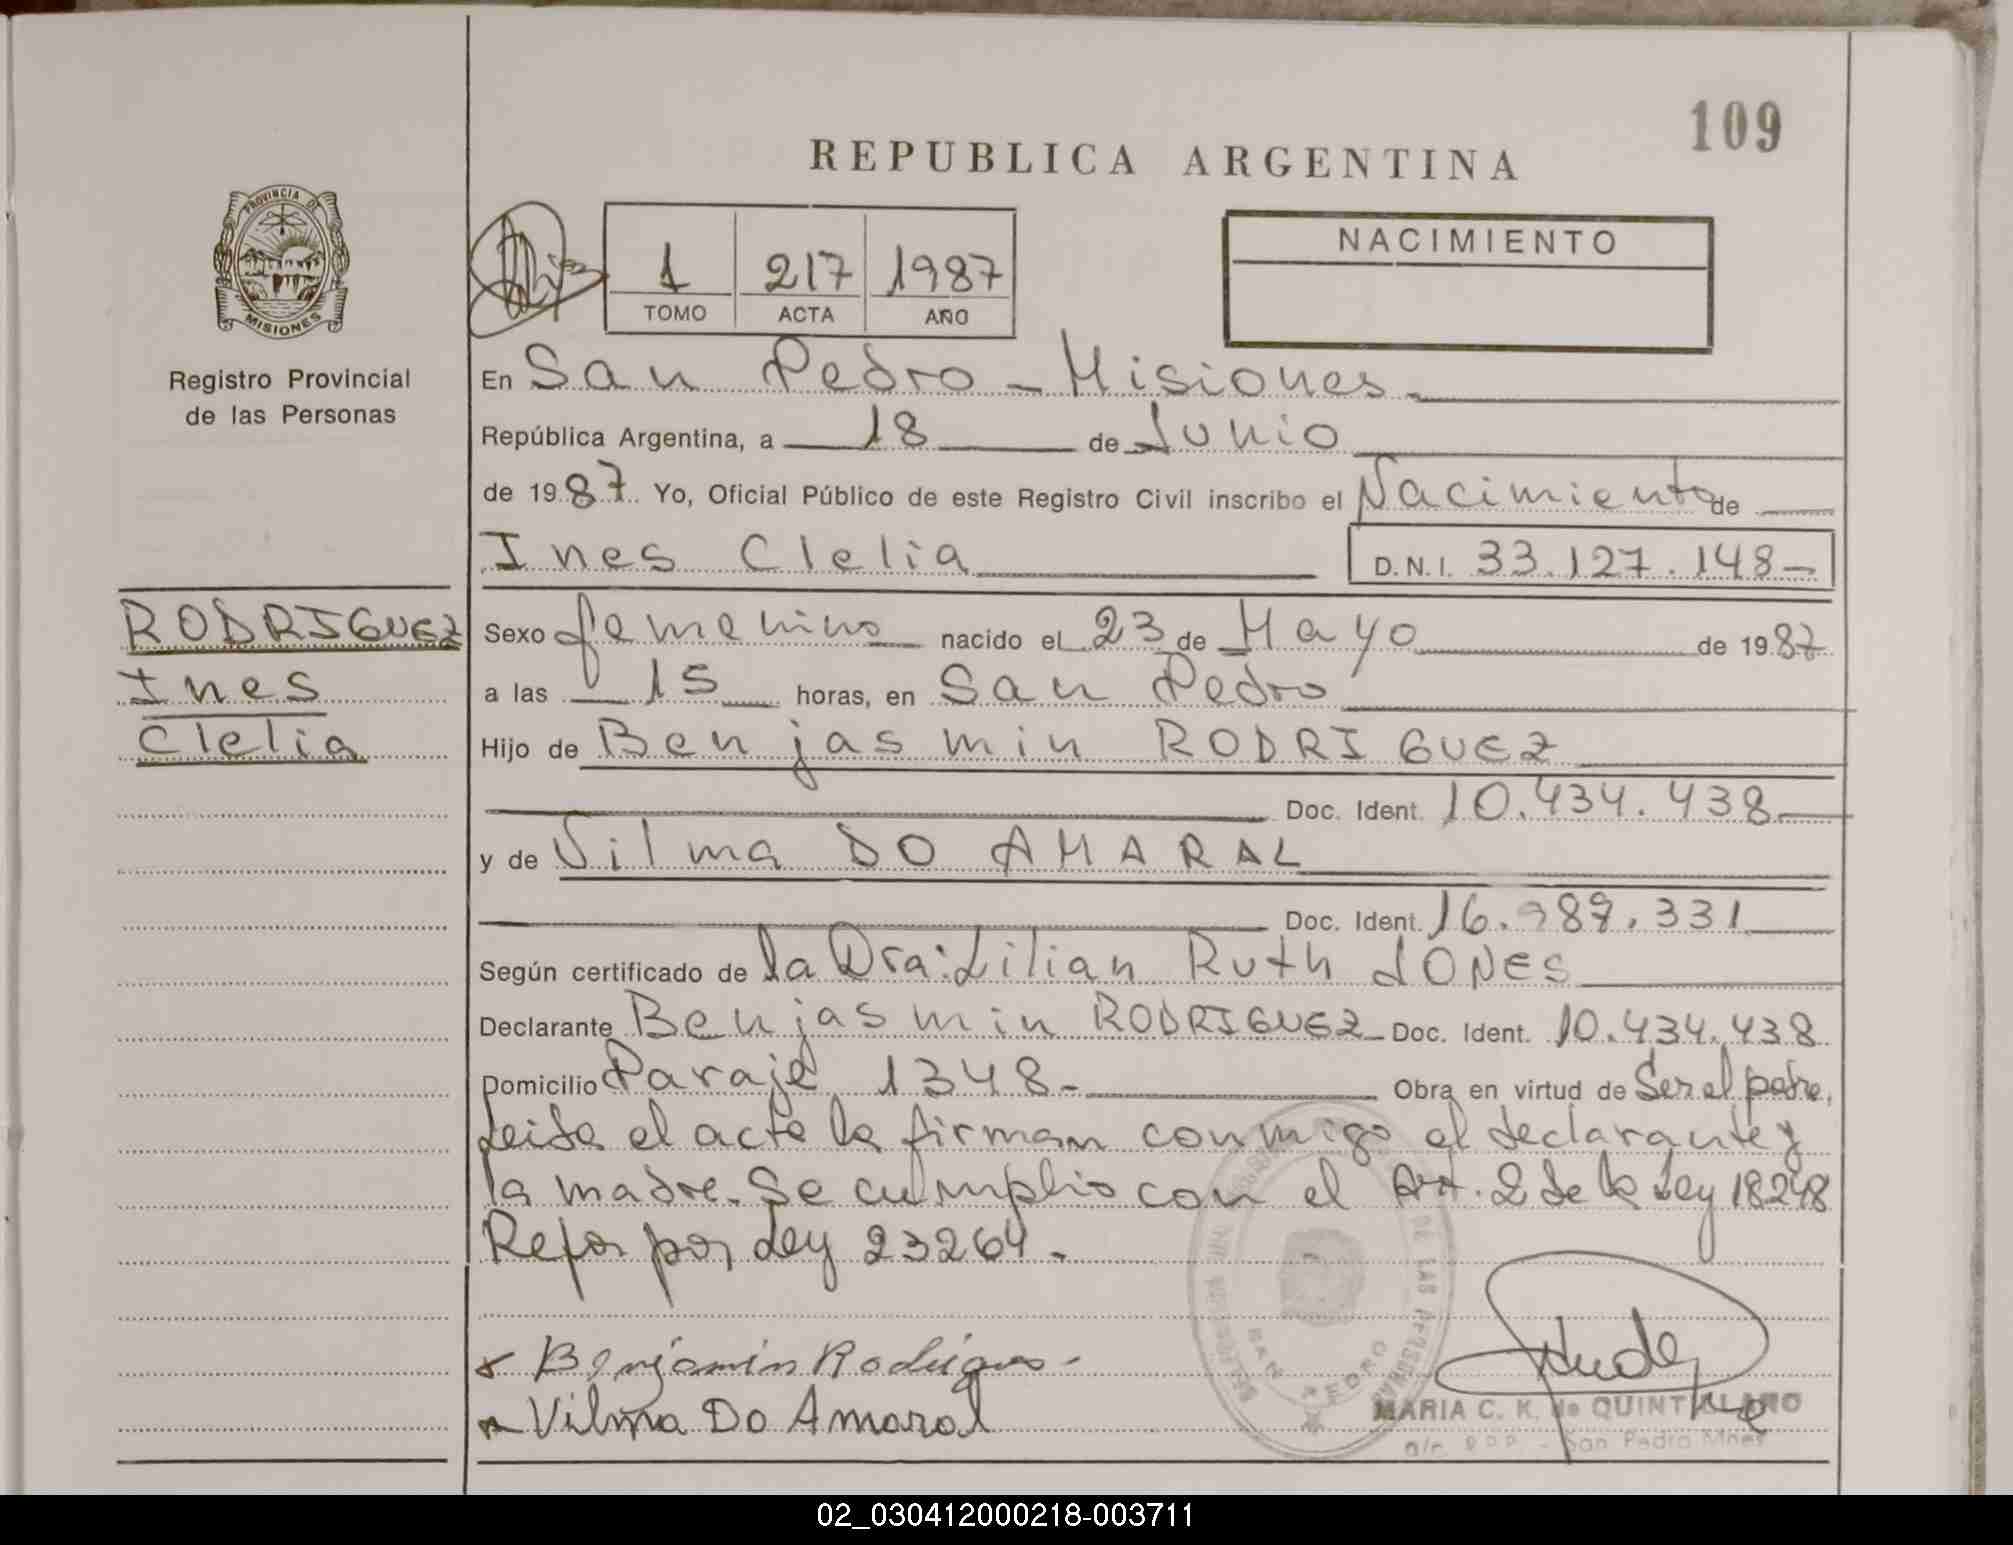 109
REPUBLICA ARGENTINA
PROVINCIA DE
MISIONES
Registro Provincial
de las Personas
1 217 1987
TOMO ACTA AÑO
NACIMIENTO
En San Pedro - Misiones
República Argentina, a 18 de Junio
de 1987. Yo, Oficial Público de este Registro Civil inscribo el Nacimiento de
Ines Clelia
D.N.I. 33.127.148-
RODRIGUEZ
Ines
Clelia
Sexo femenino nacido el 23 de Mayo de 1987
a las 15 horas, en San Pedro
Hijo de Benjasmin RODRIGUEZ
Doc. Ident. 10.434.438
y de Vilma DO AMARAL
Doc. Ident. 16.989.331
Según certificado de la Dra: Lilian Ruth JONES
Declarante Benjasmin RODRIGUEZ Doc. Ident. 10.434.438
Domicilio Paraje 1348.- Obra en virtud de Ser el padre,
Leida el acta la firman conmigo el declarante y
la madre. Se cumplio con el Art. 2 de la Ley 18248
Refor por Ley 23264.
x Benjamin Rodrigues.
Vilma Do Amaral
DE LAS PERSONAS
SAN PEDRO
MARIA C. K. de QUINTANA
a/c. R.P.P. - San Pedro Mnes
02_030412000218-003711